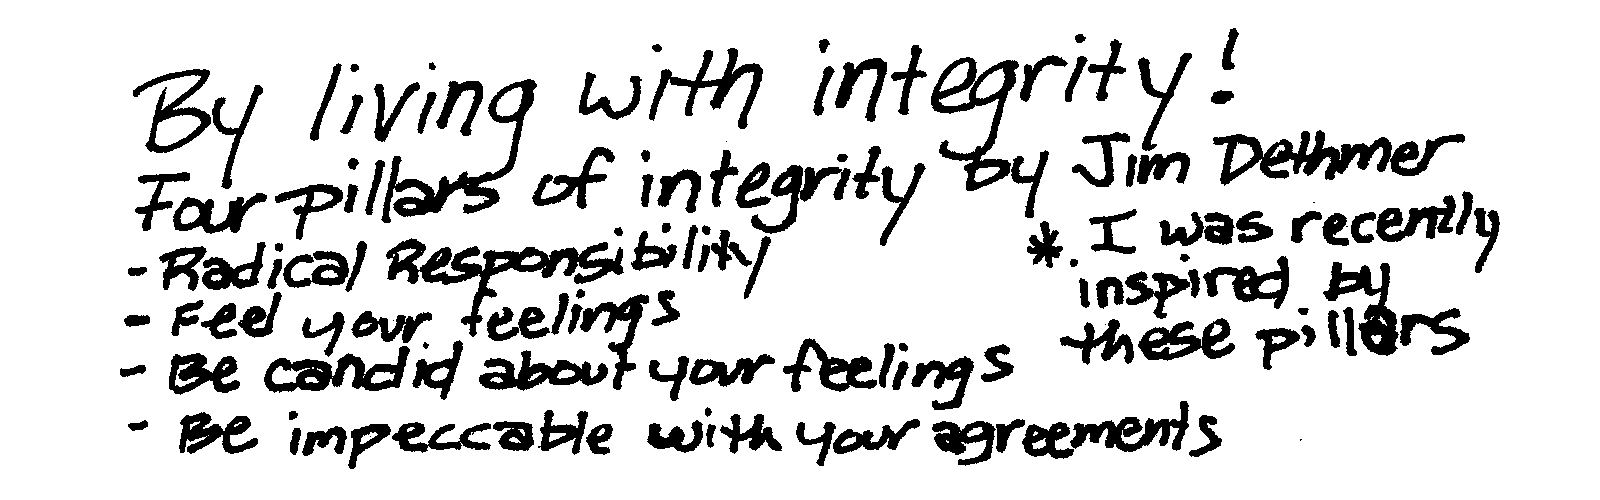 By living with integrity!
Four pillars of integrity by Jim Dethmer
- Radical Responsibility
- Feel your feelings
- Be candid about your feelings
- Be impeccable with your agreements
*. I was recently
inspired by
these pillars